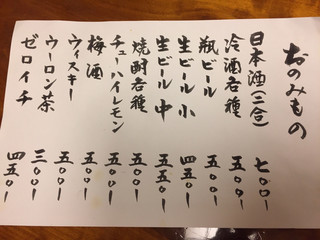 おのみもの
日本酒(二合) 七〇〇ー
冷酒各種 五〇〇ー
瓶ビール 五〇〇ー
生ビール 小 四五〇ー
生ビール 中 五五〇ー
焼酎各種 五〇〇ー
チューハイレモン 五〇〇ー
梅酒 五〇〇ー
ウィスキー 五〇〇ー
ウーロン茶 三〇〇ー
ゼロイチ 四五〇ー